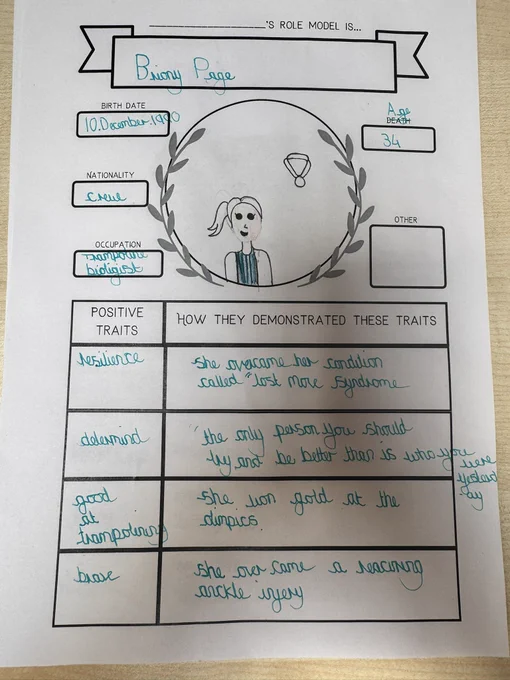 'S ROLE MODEL IS...
Briony Page
BIRTH DATE
10.December.1990
Age
DEATH
34
NATIONALITY
crewe
OCCUPATION
Trampoline
bioligist
OTHER
POSITIVE TRAITS
HOW THEY DEMONSTRATED THESE TRAITS
resilience
she overcame her condition
called "lost move syndrome
determind
"the only person you should
try and be better than is who you were
yesterd
ay
good
at
trampolining
she won gold at the
olimpics.
brave
she over came a reacuring
anckle injery